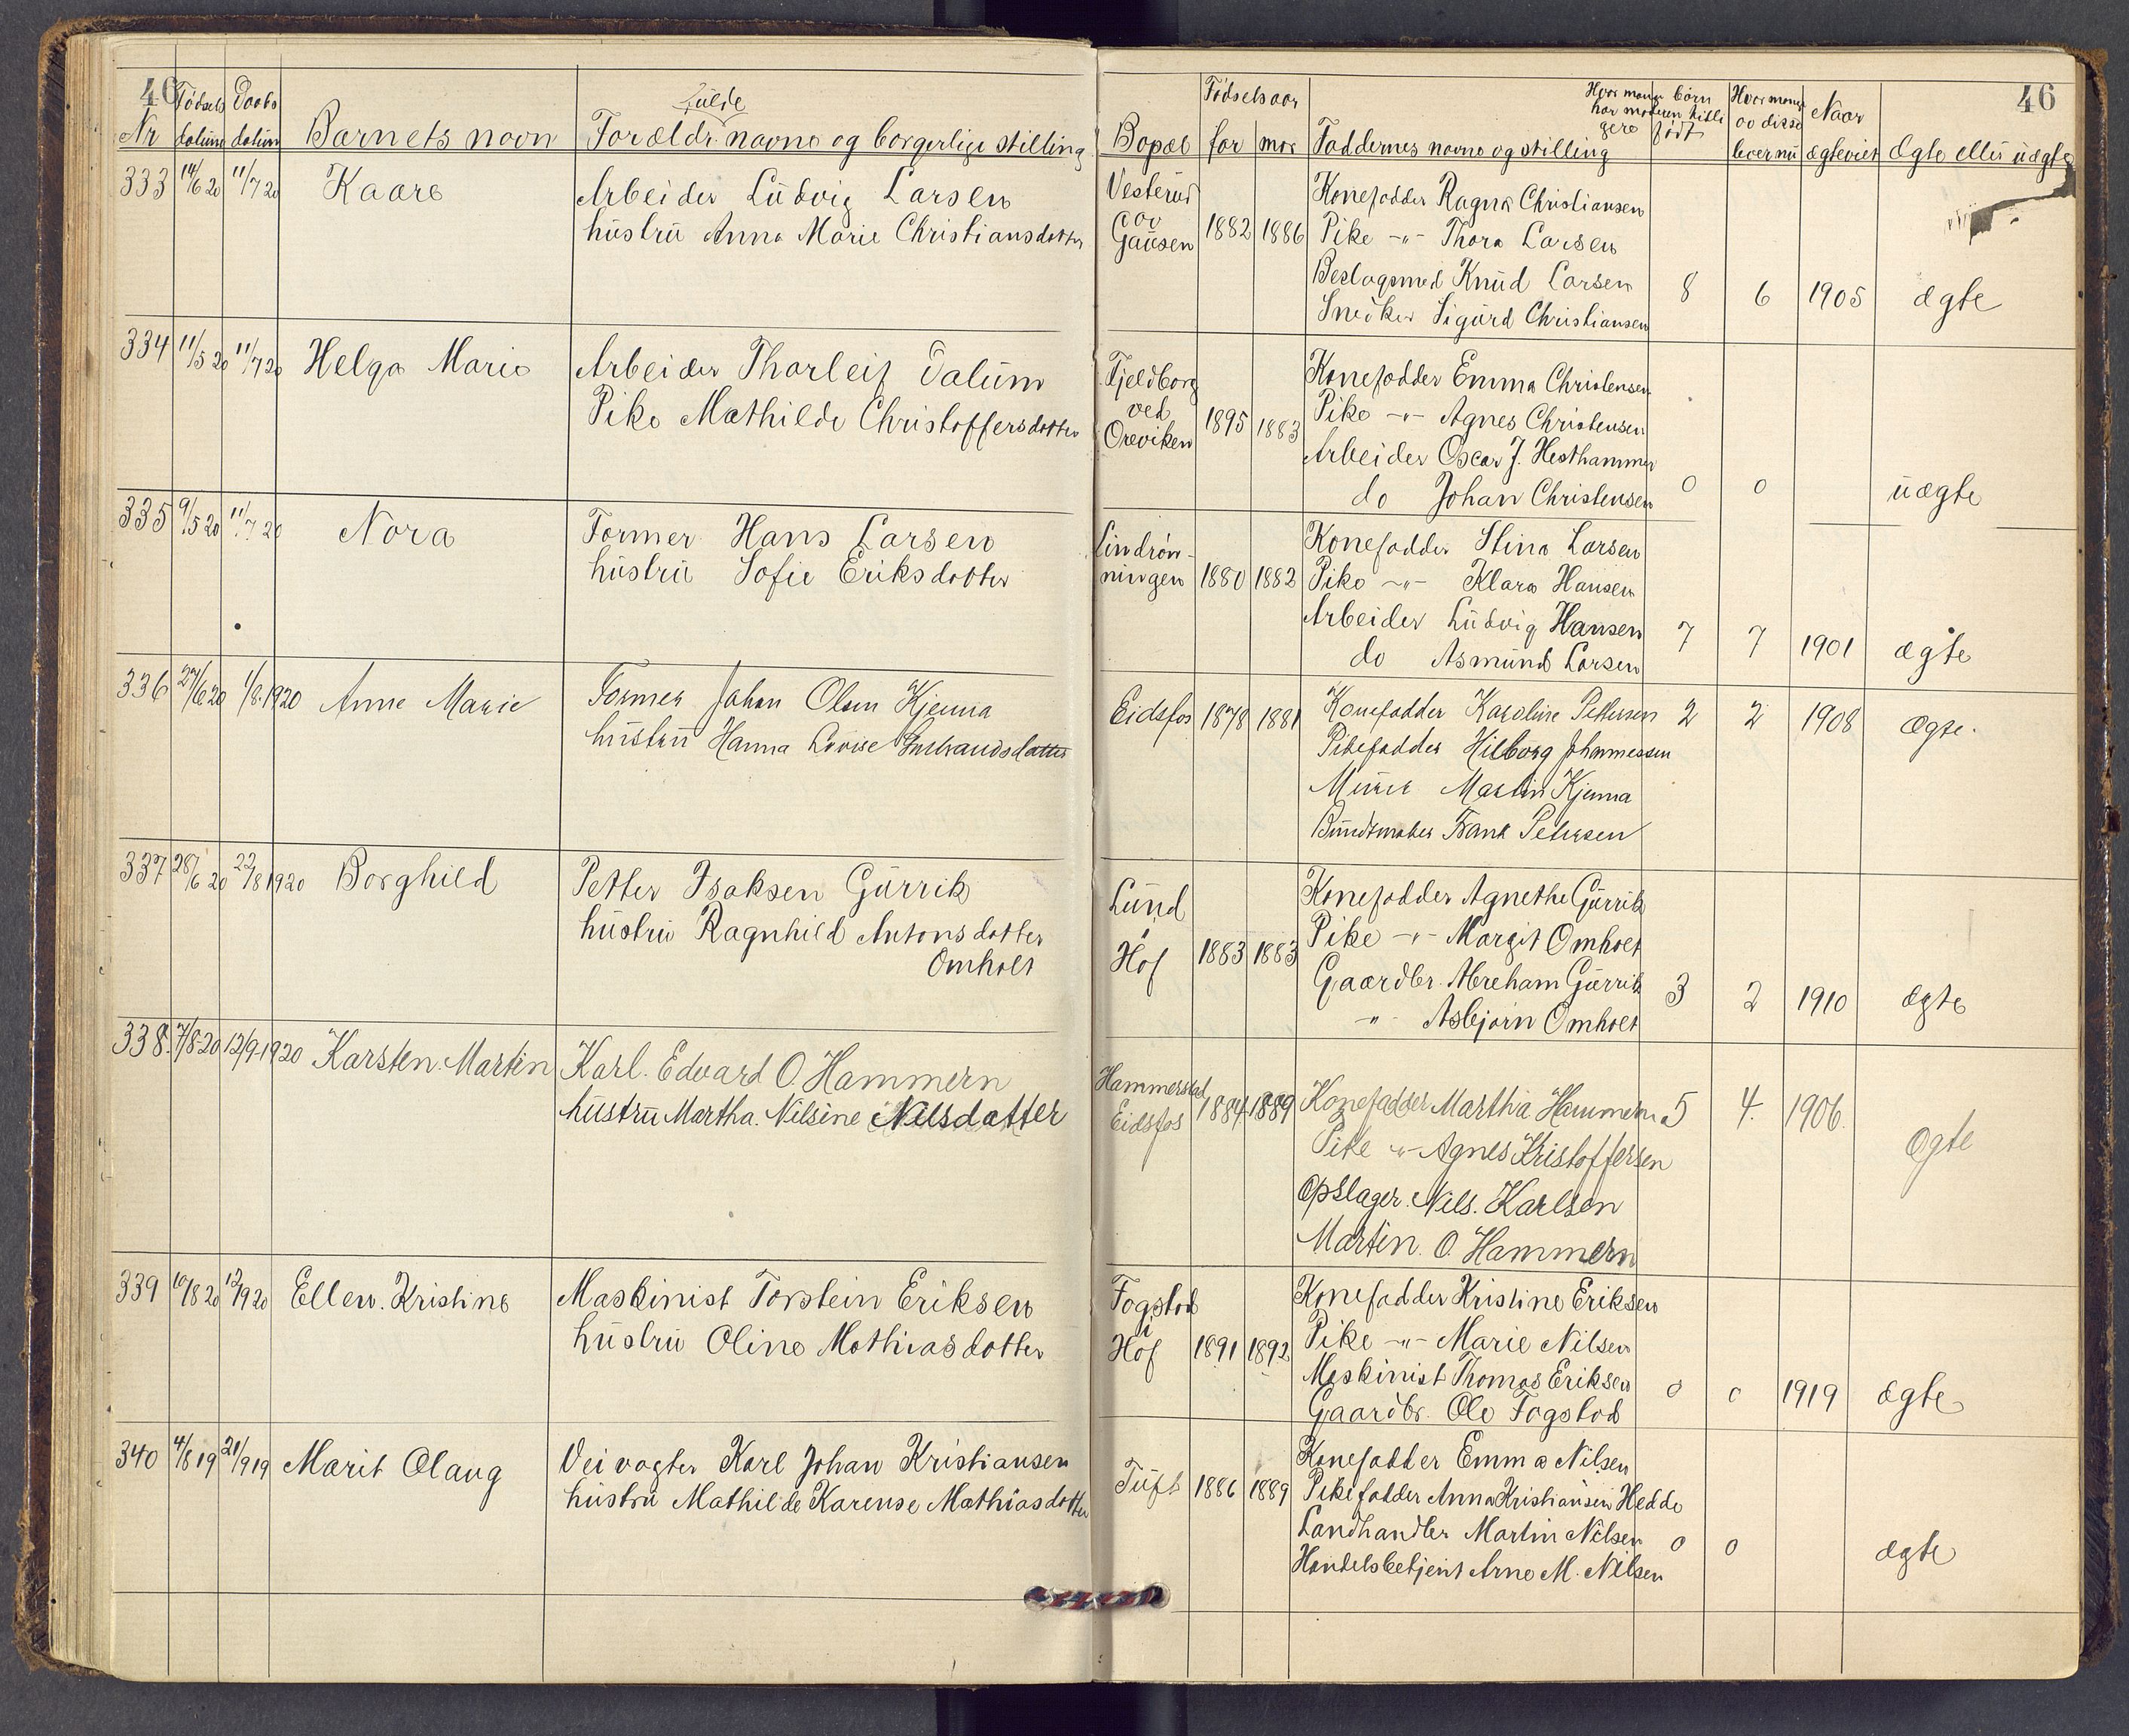 46
Nr Fødsels datum Daabs datum Barnets navn Forældr. fulde navne og borgerlige stilling
333 14/6 20 11/7 20 Kaare Arbeider Ludvig Larsen
hustru Anna Marie Christiansdatter
334 11/5 20 11/7 20 Helga Marie Arbeider Thorleif Dalum
Pike Mathilde Christoffersdatter
335 9/5 20 11/7 20 Nora Former Hans Larsen
hustru Sofie Eriksdatter
336 27/6 20 1/8 1920 Anne Marie Former Johan Olsen Kjenna
hustru Hanna Lovise Gulbrandsdatter
337 28/6 20 22/8 1920 Borghild Petter Isaksen Gurrik
hustru Ragnhild Antonsdatter
Omholt
338. 7/8-20 12/9-1920 Karsten. Martin Karl. Edvard O. Hammern
hustru Martha. Nilsine Nilsdatter
339 10/8 20 12/9 20 Ellen. Kristine Maskinist Torstein Eriksen
hustru Oline Mathiasdatter
340 4/8 19 21/9 19 Marit Olaug Veivogter Karl Johan Kristiansen
hustru Mathilde Karense Mathiasdatter
46
Fødselsaar
Bopæl far mor Faddernes navne og stilling Hvor mange børn har moderen tidligere født Hvor mange av disse lever nu Naar ægteviet Ægte eller uægte
Vesterud
av
Gausen 1882 1886 Konefadder Ragna Christiansen
Pike -"- Thora Larsen
Beslagsmed Knud Larsen 8 6 1905 ægte
Snedker Sigurd Christiansen
Fjeldborg
ved
Oreviken 1895 1883 Konefadder Emma Christensen
Pike -"- Agnes Christensen
Arbeider Oscar J. Hesthammer
do Johan Christensen 0 0 uægte
Lindrøn-
ningen 1880 1882 Konefadder Stina Larsen
Pike -"- Klara Hansen
Arbeider Ludvig Hansen 7 7 1901 ægte
do Asmund Larsen
Eidsfos 1878 1881 Konefadder Karoline Pettersen 2 2 1908 Ægte.
Pikefadder Hilborg Johannessen
Murer Martin Kjenna
Bundtmaker Frank Petersen
Lund
i
Hof 1883 1883 Konefadder Agnethe Gurrik
Pike -"- Margit Omholt
Gaardbr. Abreham Gurrik 3 2 1910 ægte
-"- Asbjørn Omholt
Hammerstad
Eidsfos 1884 1889 Konefadder Martha Hammern 5 4. 1906. Ægte
Pike -"- Agnes Kristoffersen
Opslager. Nils. Karlsen
Martin. O. Hammern
Fogstad
i
Hof 1891 1892 Konefadder Kristine Eriksen
Pike -"- Marie Nilsen
Maskinist Thomas Eriksen 0 0 1919 ægte
Gaardbr. Ole Fogstad
Tuft 1886 1889 Konefadder Emma Nilsen
Pikefadder Anna Kristiansen Hedde
Landhandler Martin Nilsen 0 0 ægte
Handelsbetjent Arne M. Nilsen